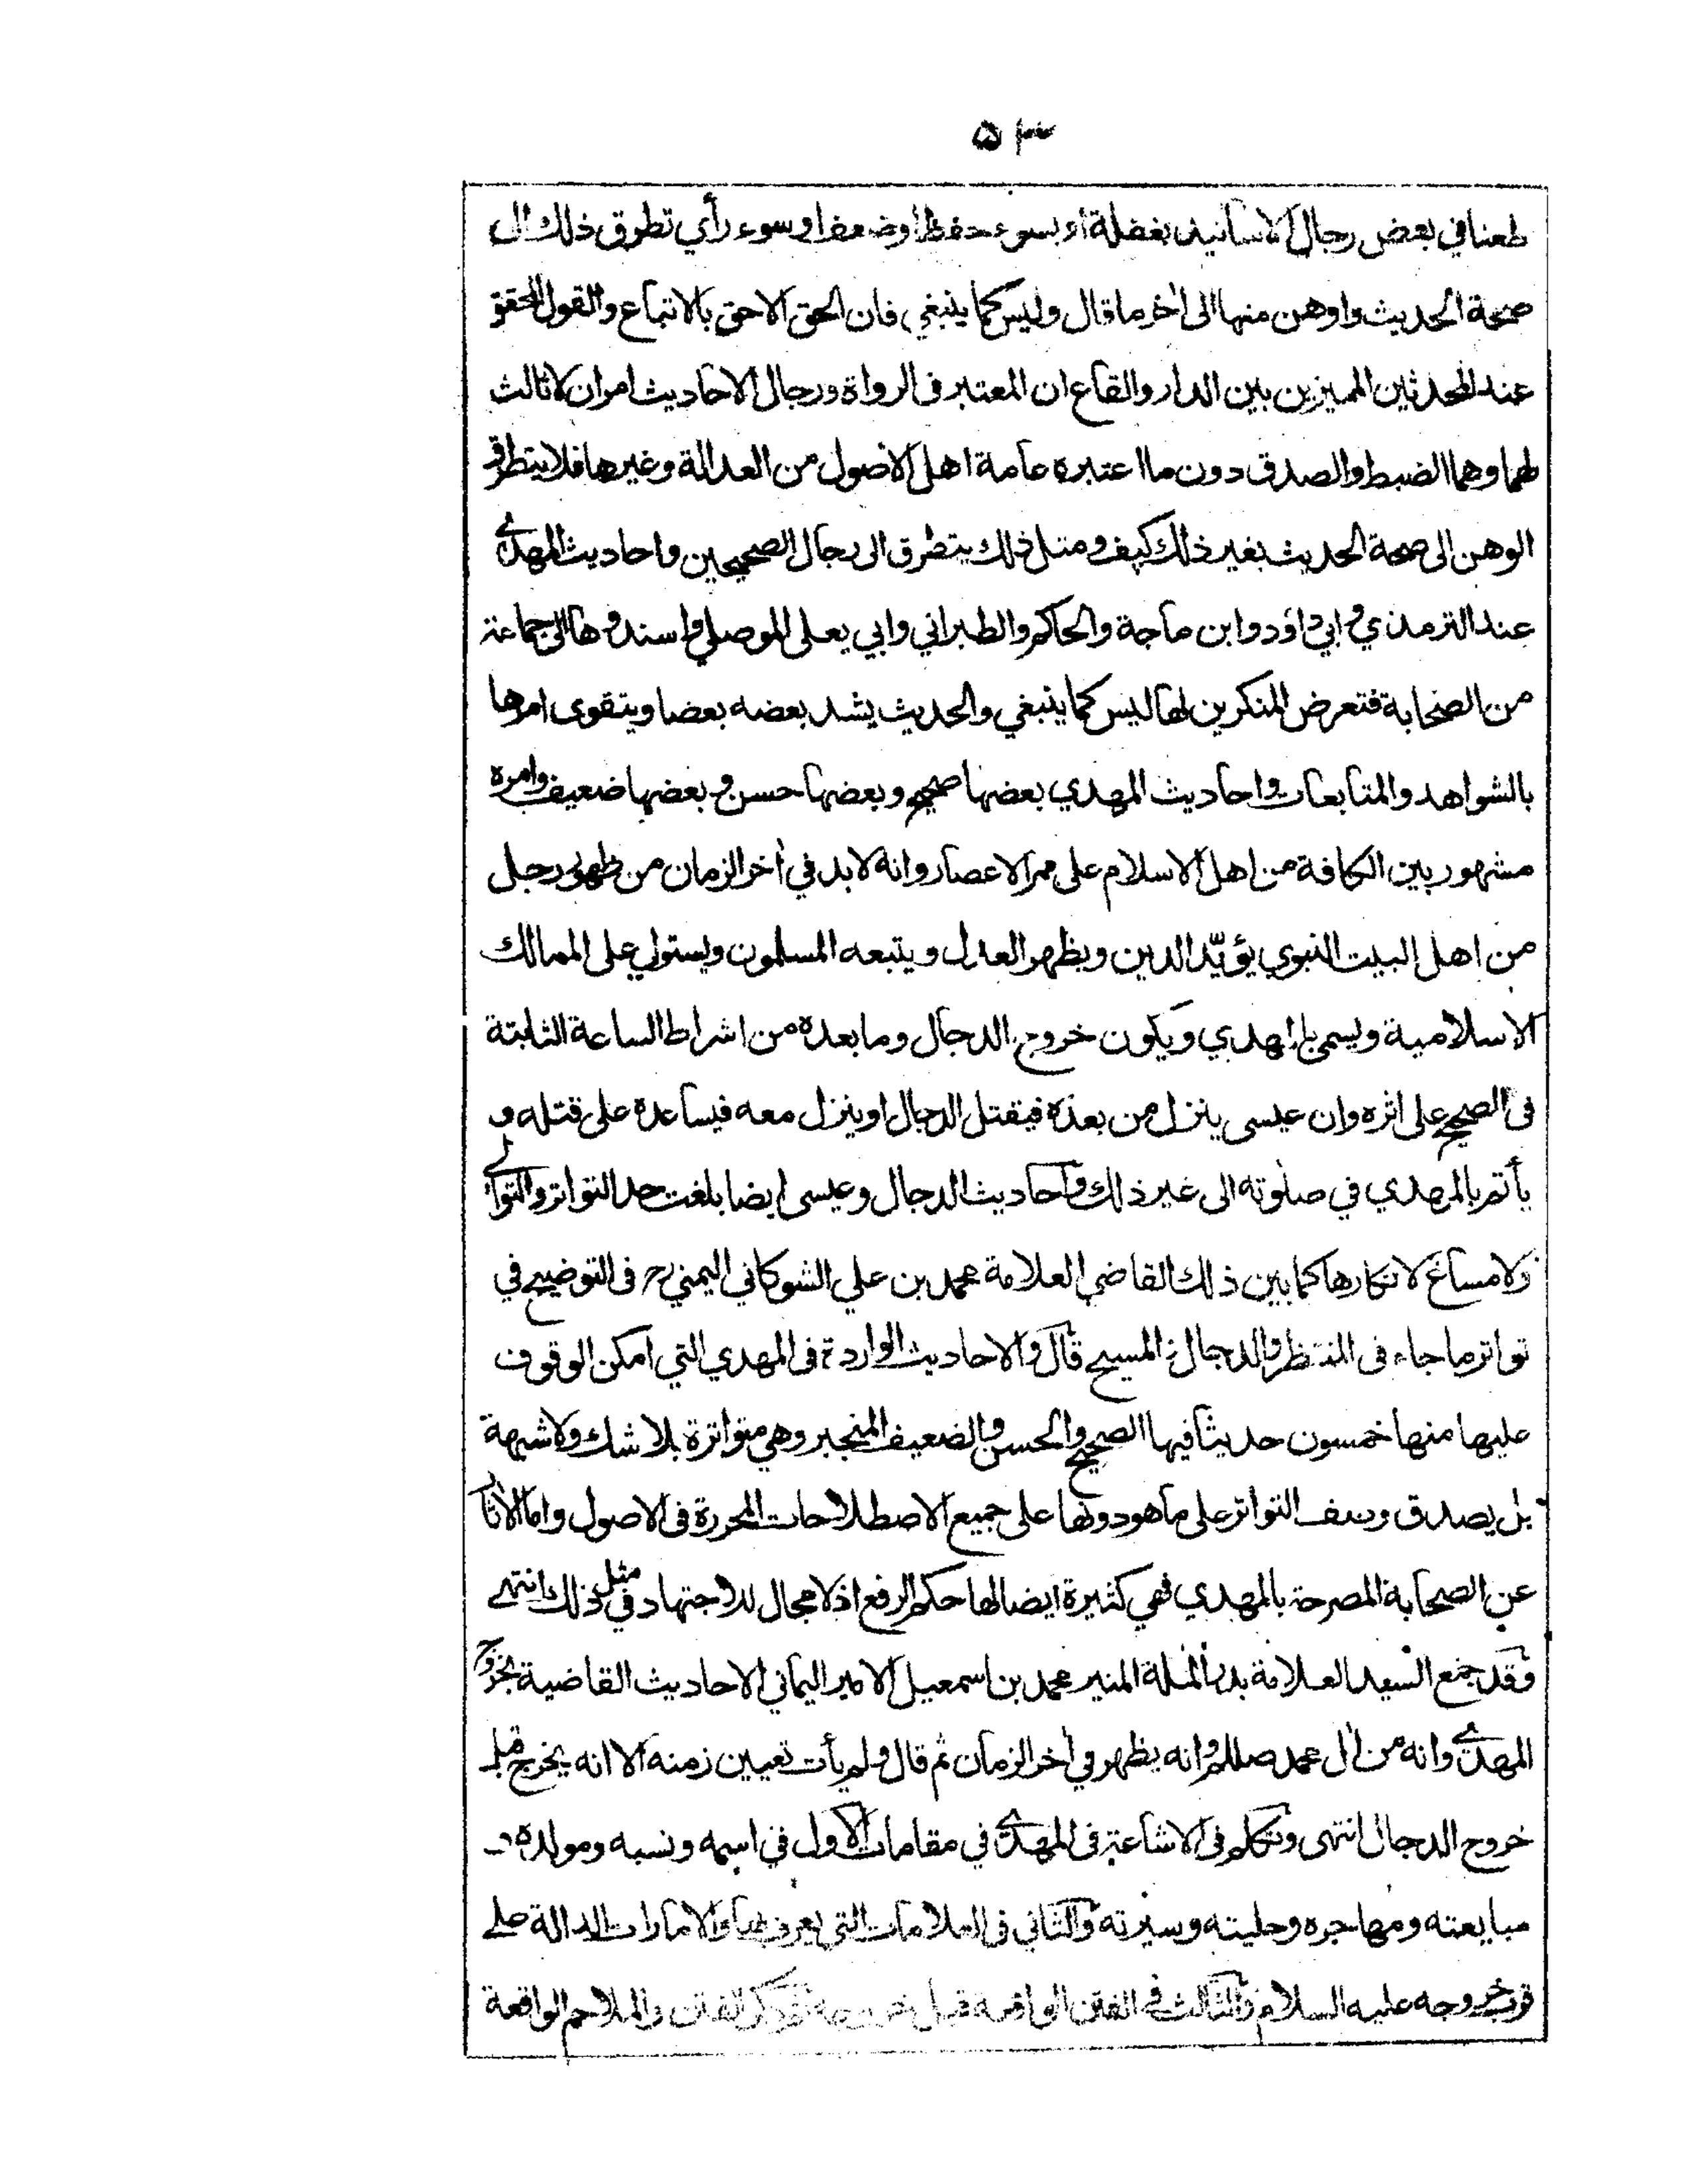 ۵۳
طعنا في بعض رجال الاسانيد بغفلة او بسوء حفظ او ضعف او سوء رأي تطرق ذلك الى
صحة الحديث واوهن منها الى اخر ما قال وليس كما ينبغي فان الحق الاحق بالاتباع والقول المحقق
عند المحدثين المميزين بين الدار والقاع ان المعتبر فى الرواة ورجال الاحاديث امران لا ثالث
لهما وهما الضبط والصدق دون ما اعتبره عامة اهل الاصول من العدالة وغيرها فلا يتطرق
الوهن الى صحة الحديث بغير ذلك كيف ومثل ذلك يتطرق الى رجال الصحيحين واحاديث المهدي
عند الترمذي وابي داؤد وابن ماجة والحاكم والطبراني وابي يعلى الموصلي واسندوها الى جماعة
من الصحابة فتعرض المنكرين لها ليس كما ينبغي والحديث يشد بعضه بعضا ويتقوى امرها
بالشواهد والمتابعات واحاديث المهدي بعضها صحيح وبعضها حسن وبعضها ضعيف وامره
مشهور بين الكافة من اهل الاسلام على ممر الاعصار وانه لا بد في أخر الزمان من ظهور رجل
من اهل البيت النبوي يؤيّد الدين ويظهر العدل ويتبعه المسلمون ويستولي على الممالك
الاسلامية ويسمى بالمهدي ويكون خروج الدجال وما بعده من اشراط الساعة الثابتة
فى الصحيح على اثره وان عيسى ينزل من بعده فيقتل الدجال او ينزل معه فيساعده على قتله و
يأتم بالمهدي في صلوته الى غير ذلك واحاديث الدجال وعيسى ايضا بلغت حد التواتر والتوالي
ولا مساغ لانكارها كما بين ذلك القاضي العلامة محمد بن علي الشوكاني اليمني رح فى التوضيح في
تواتر ما جاء فى المنتظر والدجال والمسيح قال والاحاديث الواردة فى المهدي التي امكن الوقوف
عليها منها خمسون حديثا فيها الصحيح والحسن والضعيف المنجبر وهي متواترة بلا شك ولا شبهة
بل يصدق وصف التواتر على ما هو دونها على جميع الاصطلاحات المحررة فى الاصول واما الأثار
عن الصحابة المصرحة بالمهدي فهي كثيرة ايضا لها حكم الرفع اذ لا مجال للاجتهاد في مثل ذلك انتهى
وقد جمع السيد العلامة بدر الملة المنير محمد بن اسمعيل الامير اليماني الاحاديث القاضية بخروج
المهدي وانه من أل محمد صللم وانه يظهر في أخر الزمان ثم قال ولم يأت تعيين زمنه الا انه يخرج قبل
خروج الدجال انتهى وتكلم فى الاشاعة فى المهدي في مقامات الاول في اسمه ونسبه ومولده و
مبايعته ومهاجره وحليته وسيرته والثاني فى العلامات التي يعرف بها والامارات الدالة على
قرب خروجه عليه السلام والثالث فى الفتن الواقعة قبل خروجه وذكر الفتن والملاحم الواقعة